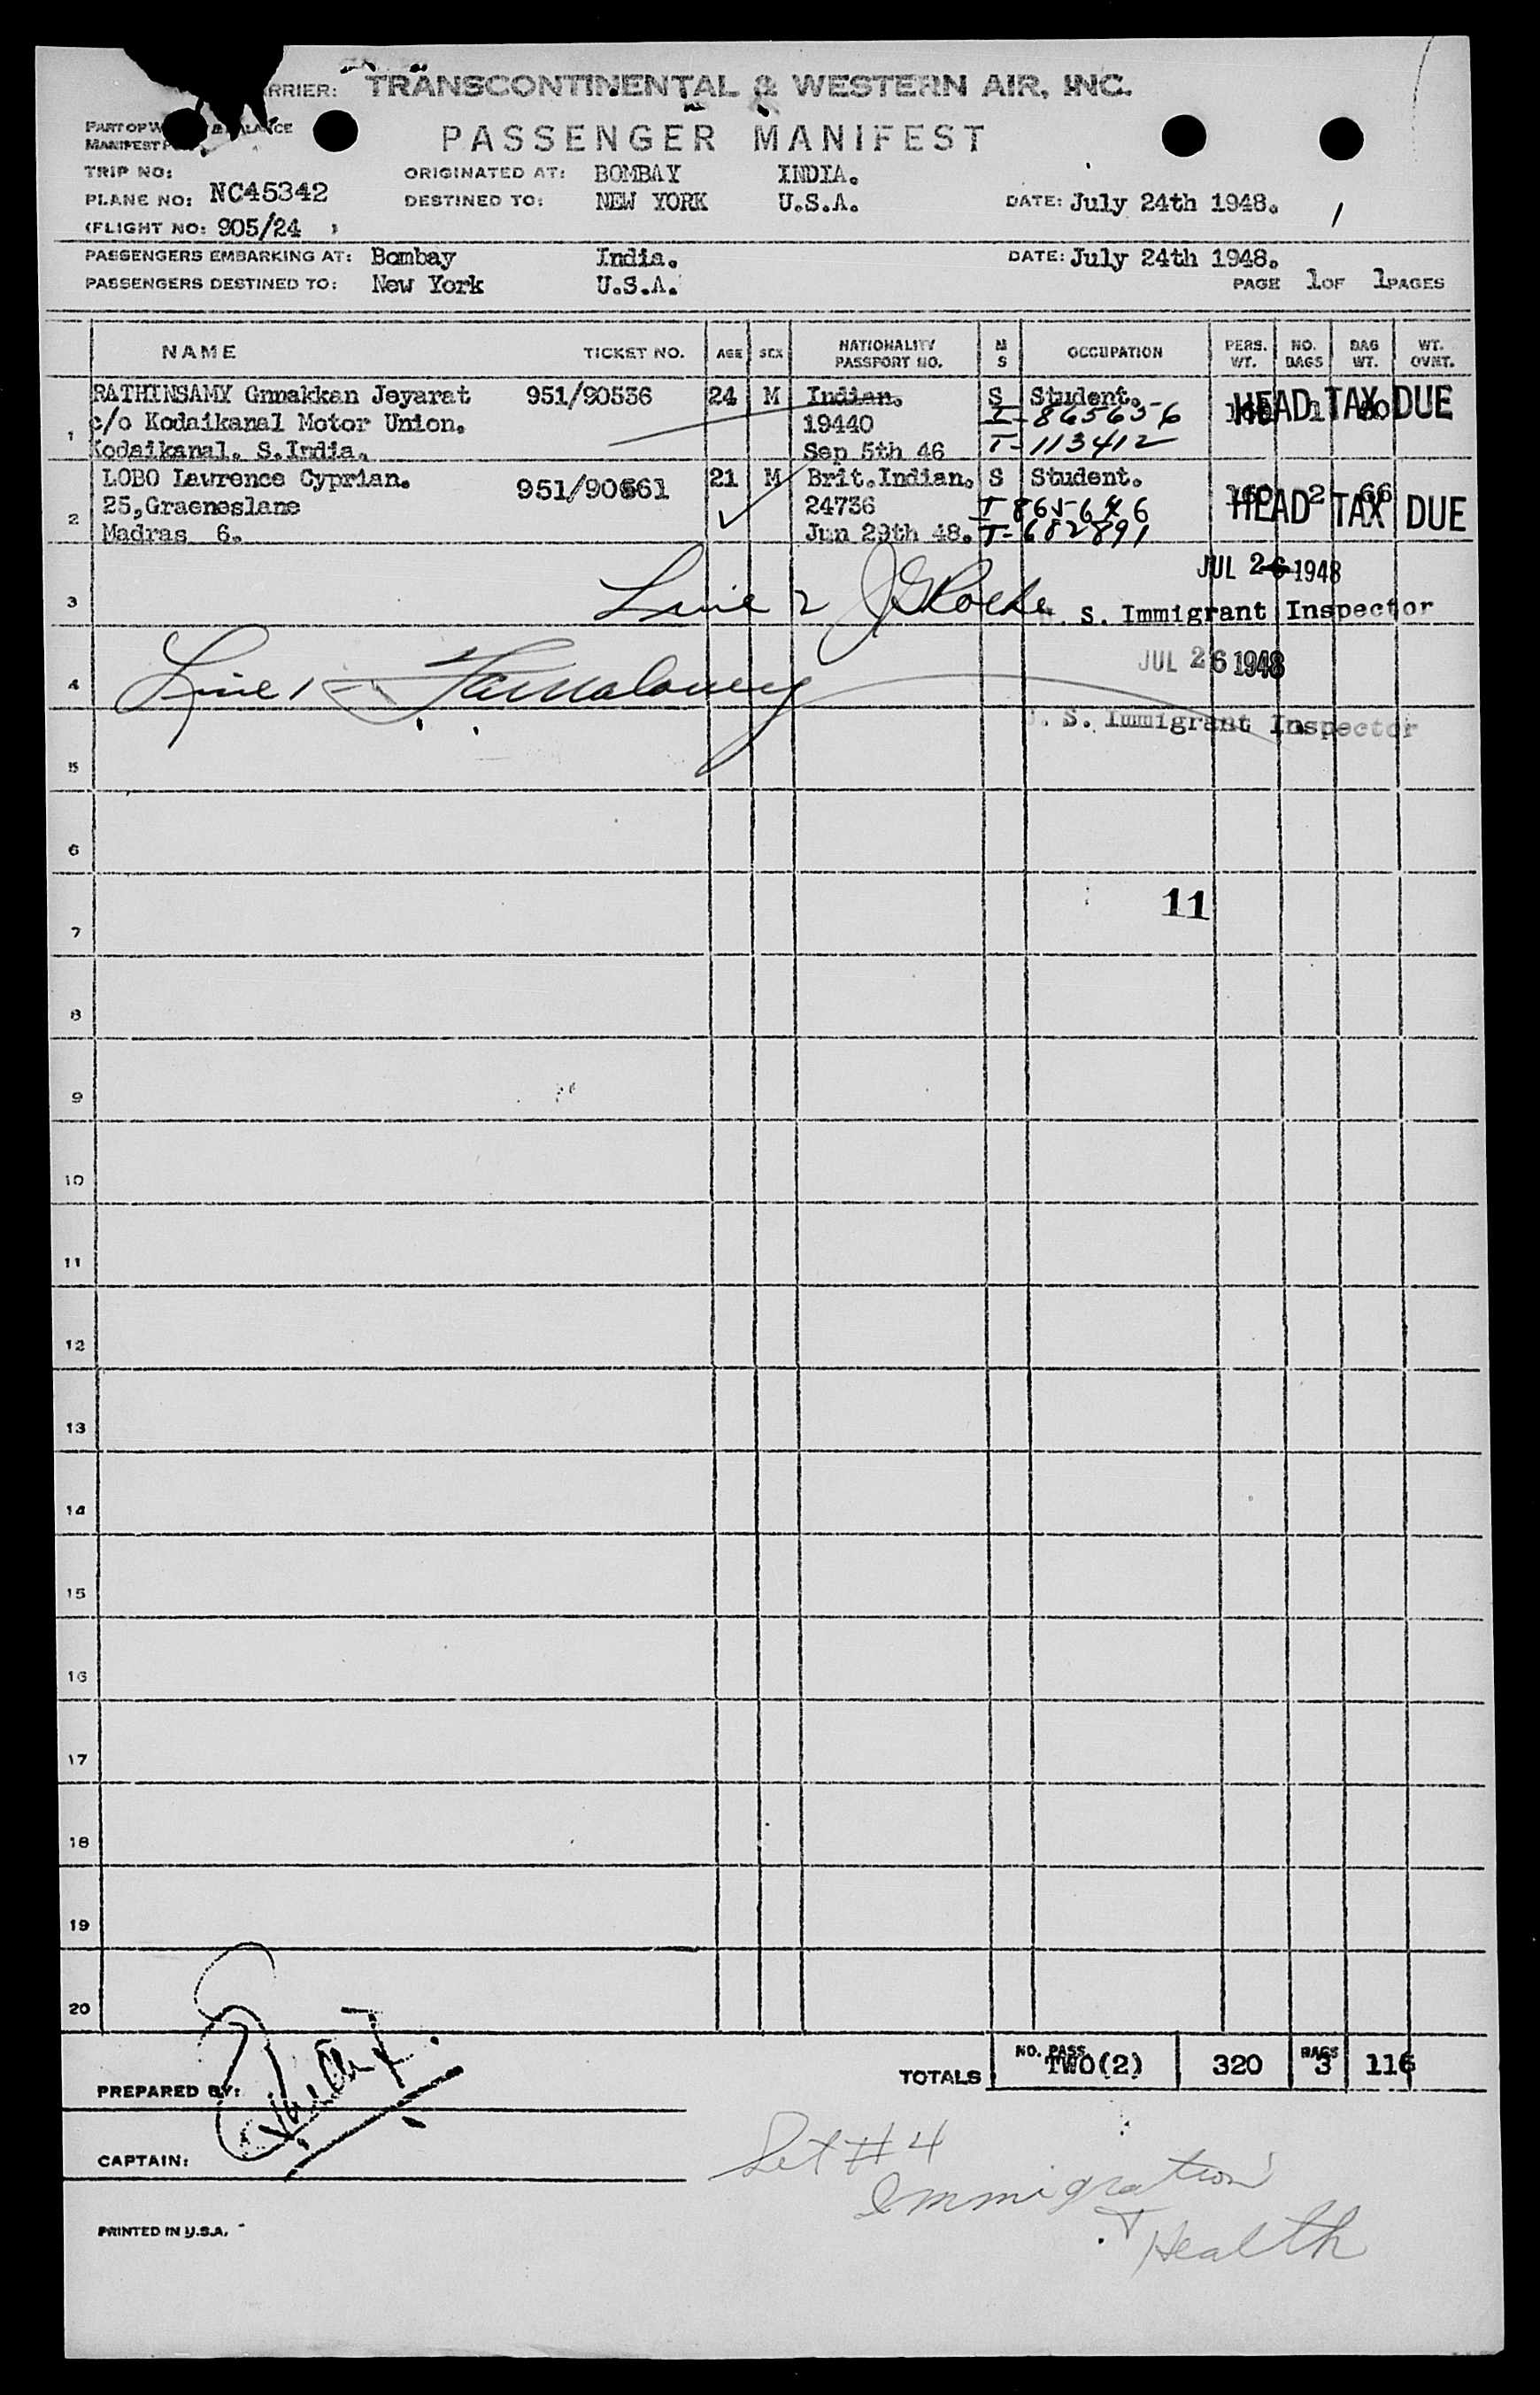 RRIER: TRANSCONTINENTAL & WESTERN AIR, INC.
PART OF W & BALANCE
MANIFEST
PASSENGER MANIFEST
TRIP NO: ORIGINATED AT: BOMBAY INDIA.
PLANE NO: NC45342 DESTINED TO: NEW YORK U.S.A. DATE: July 24th 1948. /
(FLIGHT NO: 905/24 )
PASSENGERS EMBARKING AT: Bombay India. DATE: July 24th 1948.
PASSENGERS DESTINED TO: New York U.S.A. PAGE 1 OF 1 PAGES
NAME TICKET NO. AGE SEX NATIONALITY PASSPORT NO. M S OCCUPATION PERS. WT. NO. BAGS BAG WT. WT. OVNT.
RATHINSAMY Gnnakkan Jeyarat 951/90536 24 M Indian. S Student. HEAD TAX DUE
1 c/o Kodaikanal Motor Union. 19440 I-865656
Kodaikanal. S.India. Sep 5th 46 T-113412
LOBO Lawrence Cyprian. 951/90661 21 M Brit.Indian. S Student. 160 2 66
2 25,Graeneslane 24736 I 865646 HEAD TAX DUE
Madras 6. Jun 29th 48. T-682891
JUL 26 1948
3 Line 2 . S. Immigrant Inspector
JUL 26 1948
4 Line 1
. S. Immigrant Inspector
5
6
11
7
8
9
10
11
12
13
14
15
16
17
18
19
20
TOTALS NO. PASS. TWO(2) 320 BAGS 3 116
PREPARED BY:
CAPTAIN:
Set #4
Immigration
+ Health
PRINTED IN U.S.A.